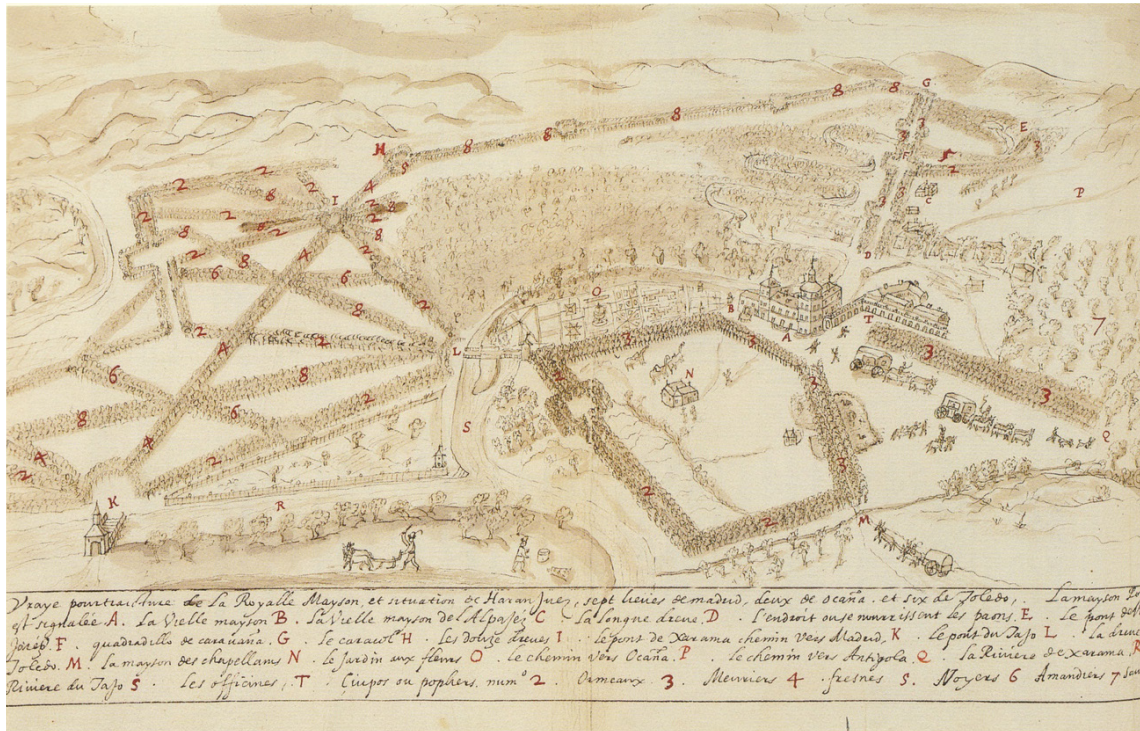 G
8 8
8
8 3
8 E
H 8 3 3
5 F 5 2
2 2 4 8 3 C P
2 8 I 2 8 3
2 2 8 2
8 4 8 2 D
6 8 6 O
8 2 B T 7
2 2 4 L 3 3 A 3
6 8 2 3 N 3
8 6 2 S 3 Q
4 2 4 2 3
K R 2 2 M
Vraye pourtraicture de La Royalle Mayson, et situation de Haran Juez, sept lieues de madrid, deux de ocaña, et six de Toledo, La mayson
est signalée A. La Vielle mayson B. La Vielle mayson del Alpajés C La longue dreue, D. l'endroit ou se nourrissent les paons. E. Le pont de
Jorép. F. quadradillo de caracuña. G. Le caracol H. Les douze dreues I. le pont de Xarama chemin vers Madrid, K. le pont du Tajo L. la dreue
Toledo. M. la mayson des chapellans N. le Jardin aux fleurs O. le chemin vers Ocaña. P. le chemin vers Antigola Q. la Riviere de xarama, R
Riviere du Tajo S. Les officines, T. Çiupos ou popliers, num⁰ 2. Ormeaux. 3. Meuriers 4. fresnes 5. Noyers 6 Amandriers 7